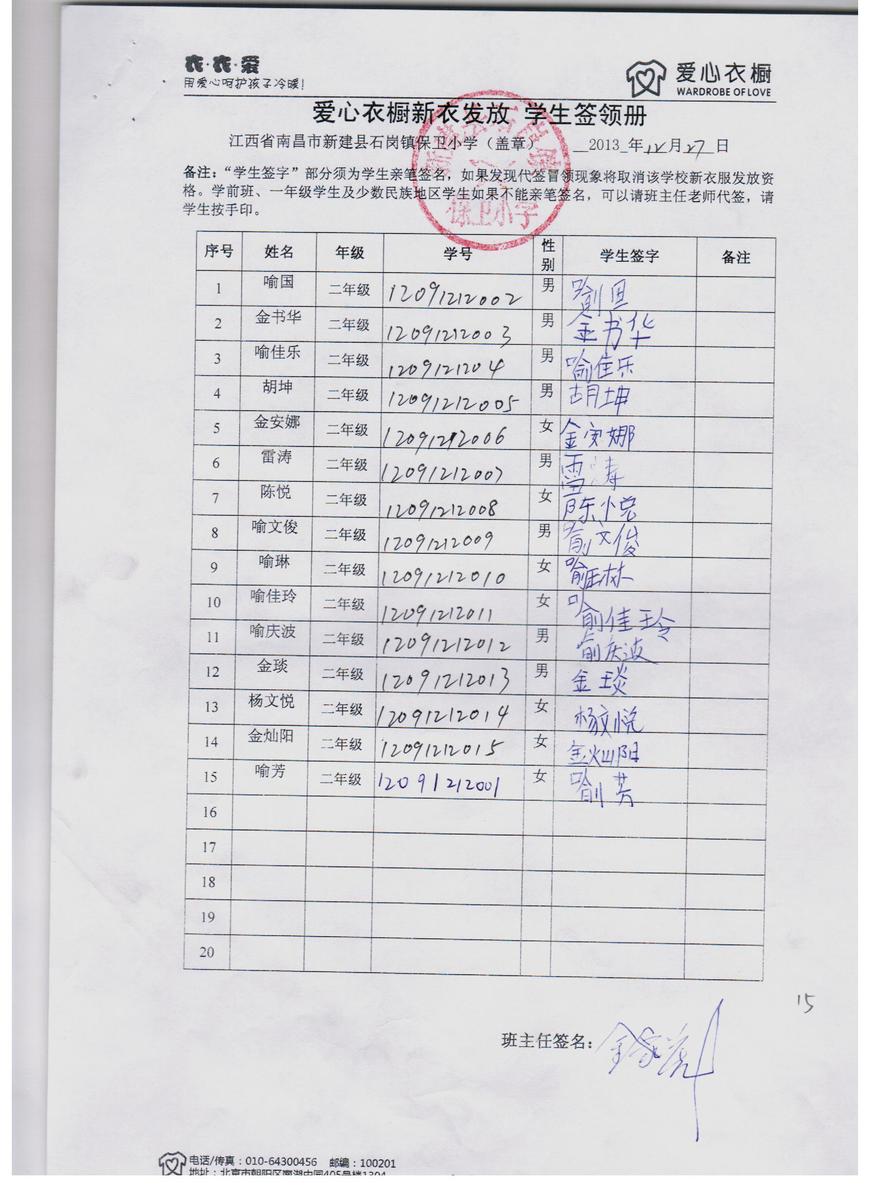 衣·衣·爱
用爱心呵护孩子冷暖!
爱心衣橱
WARDROBE OF LOVE
爱心衣橱新衣发放 学生签领册
江西省南昌市新建县石岗镇保卫小学（盖章） 2013 年12月27日
保卫小学
备注：“学生签字”部分须为学生亲笔签名，如果发现代签冒领现象将取消该学校新衣服发放资
格。学前班、一年级学生及少数民族地区学生如果不能亲笔签名，可以请班主任老师代签，请
学生按手印。
序号 姓名 年级 学号 性别 学生签字 备注
1 喻国 二年级 12091212002 男 喻国
2 金书华 二年级 12091212003 男 金书华
3 喻佳乐 二年级 1209121204 男 喻佳乐
4 胡坤 二年级 12091212005 男 胡坤
5 金安娜 二年级 12091212006 女 金安娜
6 雷涛 二年级 12091212007 男 雷涛
7 陈悦 二年级 12091212008 女 陈小悦
8 喻文俊 二年级 12091212009 男 喻文俊
9 喻琳 二年级 12091212010 女 喻琳
10 喻佳玲 二年级 12091212011 女 喻佳玲
11 喻庆波 二年级 12091212012 男 俞庆波
12 金琰 二年级 12091212013 男 金琰
13 杨文悦 二年级 12091212014 女 杨文悦
14 金灿阳 二年级 12091212015 女 金灿阳
15 喻芳 二年级 12091212001 女 喻芳
16
17
18
19
20
15
班主任签名：
电话/传真：010-64300456 邮编：100201
地址：北京市朝阳区南湖中园405号楼1304